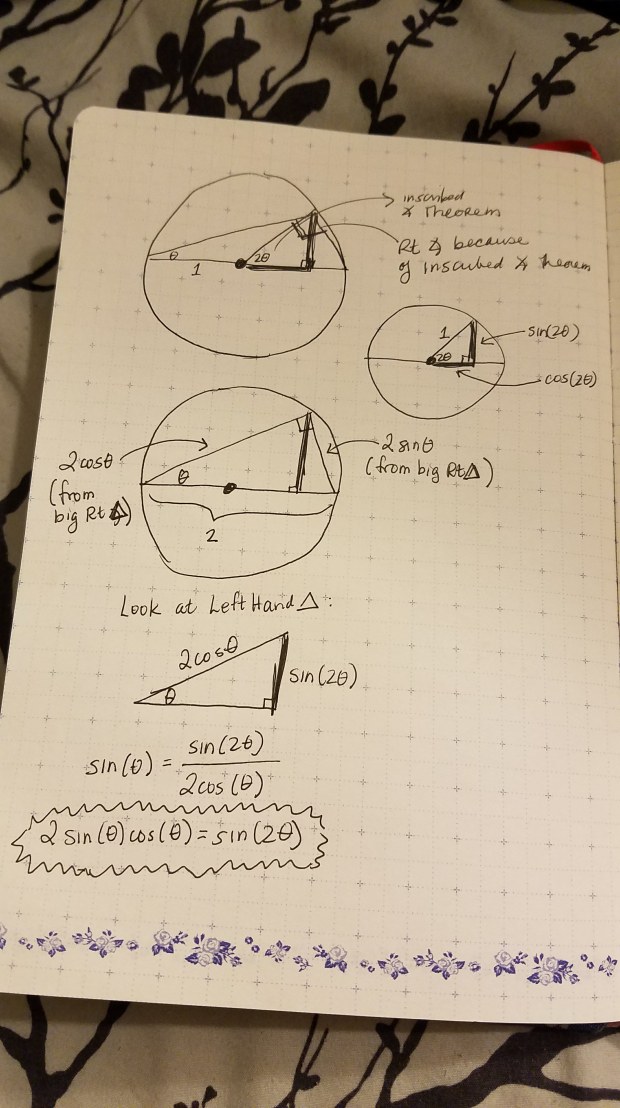 inscribed
∡ Theorem
Rt ∡ because
of inscribed ∡ Theorem
θ
2θ
1
1
2θ
sin(2θ)
cos(2θ)
2cosθ
(from
big Rt △)
θ
2sinθ
(from big Rt△)
2
Look at Left Hand △:
2cosθ
θ
sin(2θ)
sin(θ) = sin(2θ)
2cos(θ)
2 sin(θ)cos(θ) = sin(2θ)